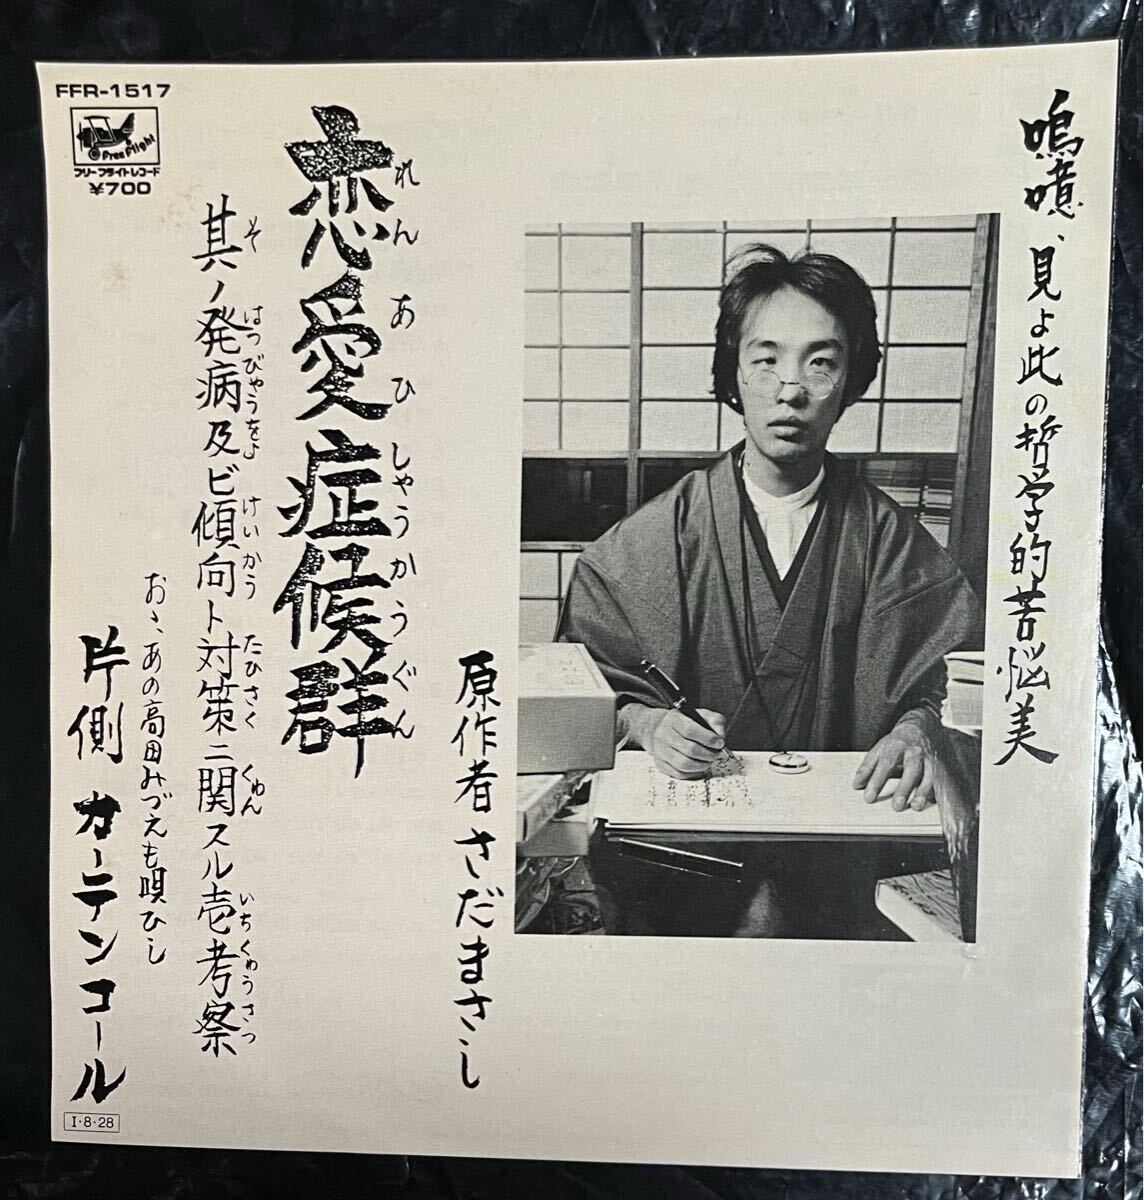 FFR-1517
Free Flight
フリーフライトレコード
¥700
嗚噫、見よ此の哲学的苦悩美
原作者 さだまさし
恋愛症候群
れんあひしゃうかうぐん
其ノ発病及ビ傾向ト対策ニ関スル壱考察
そ はつびゃうをよ けいかう たひさく くゎん いちくゎうさつ
おゝ、あの高田みづえも唄ひし
片側 カーテンコール
I・8・28